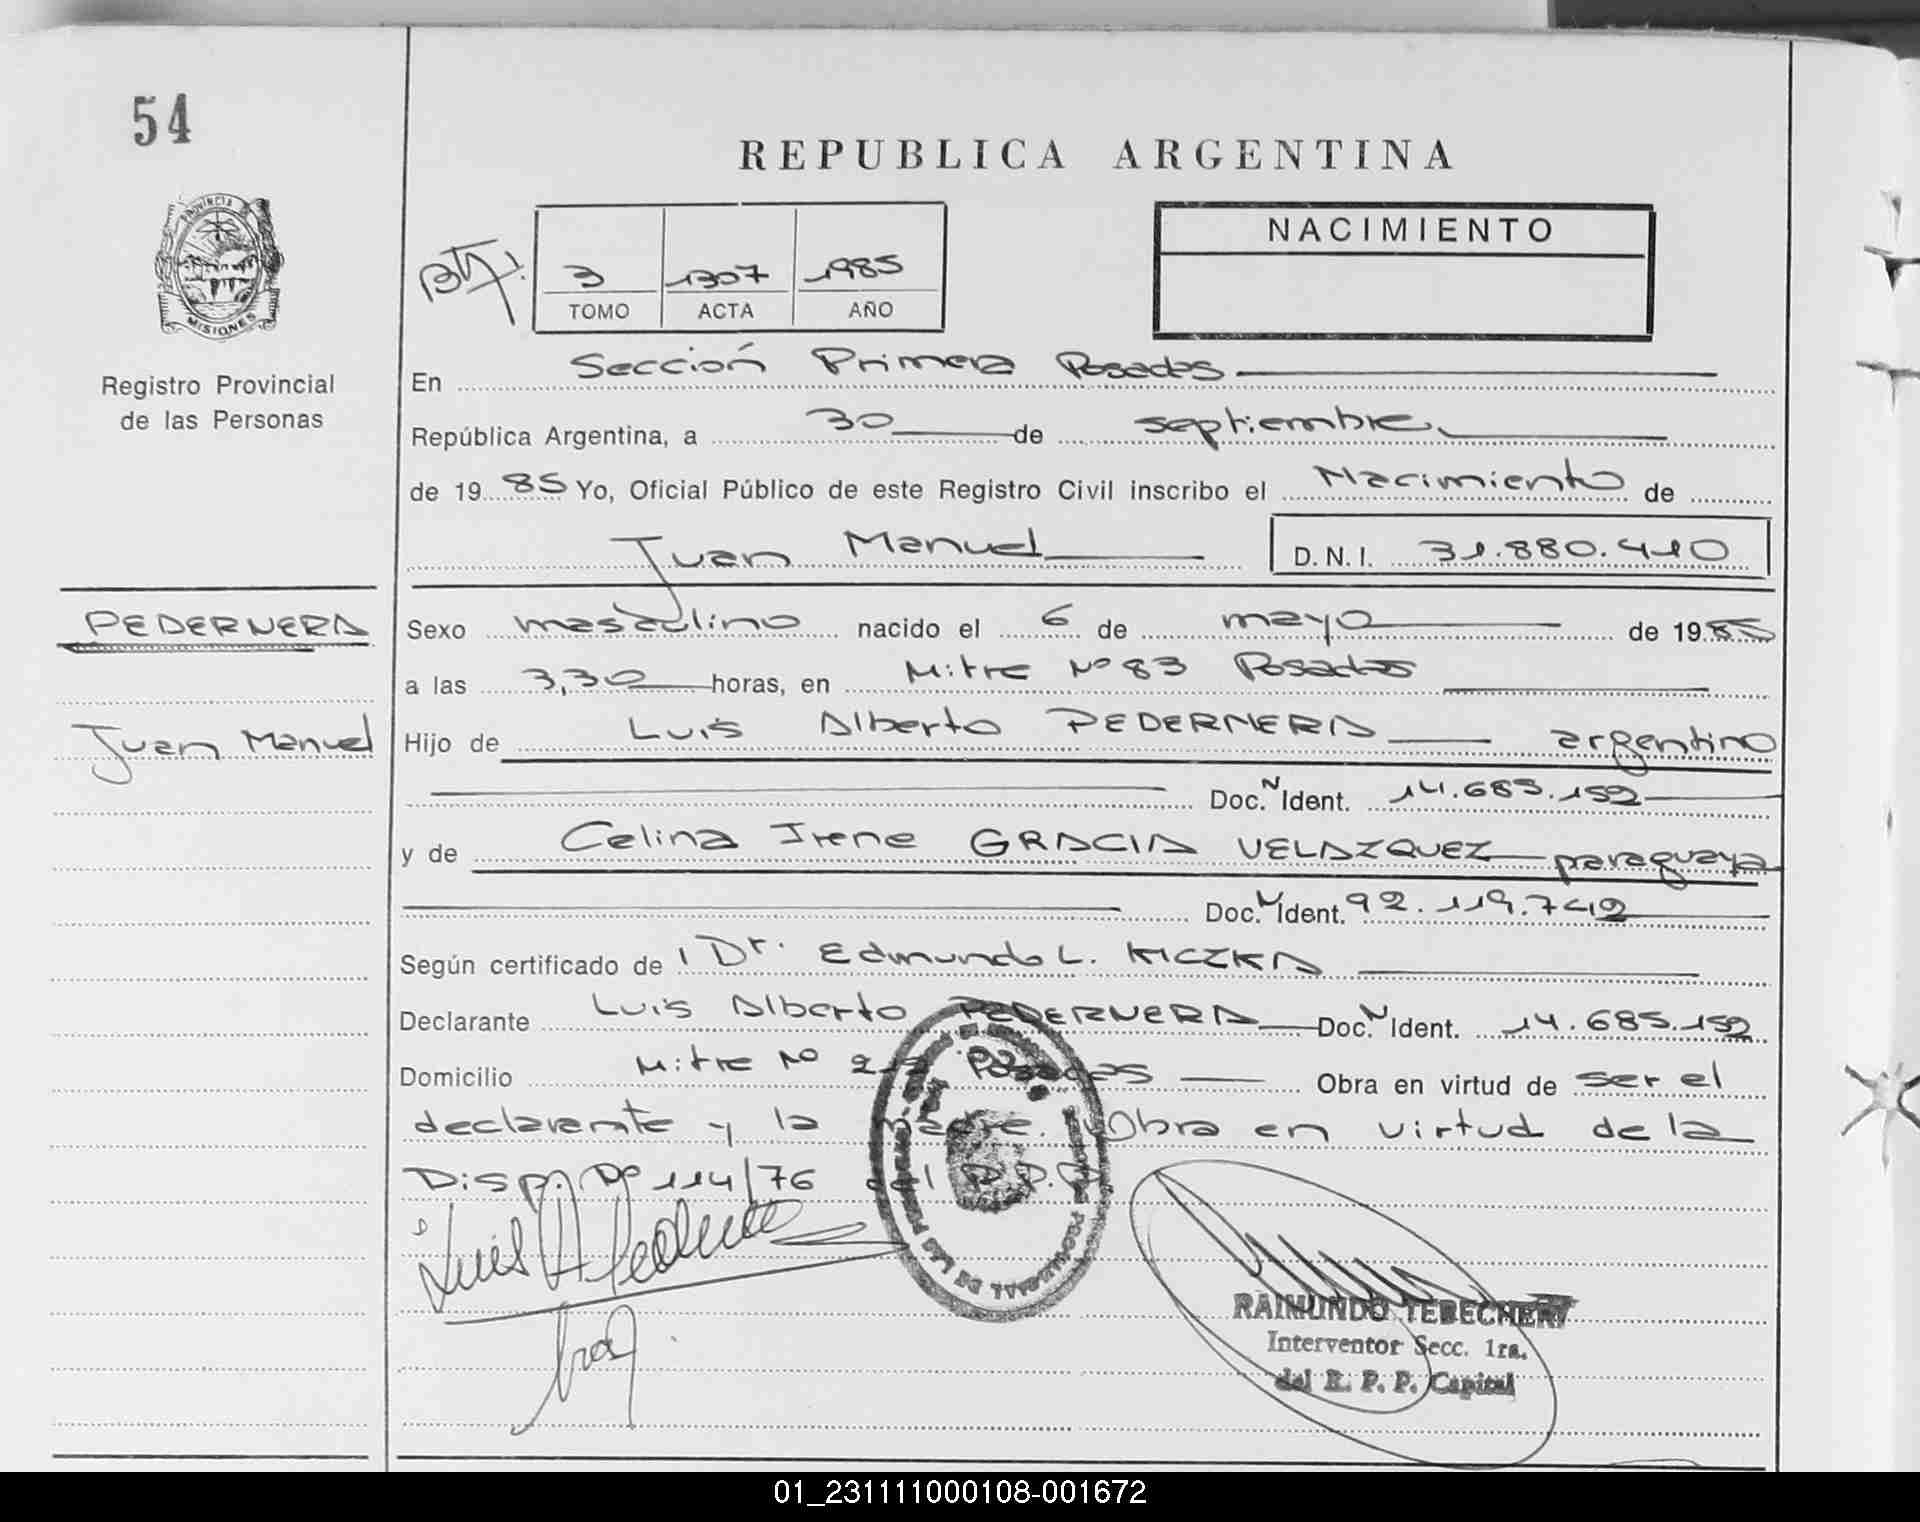 54
REPUBLICA ARGENTINA
PROVINCIA DE
MISIONES
Registro Provincial
de las Personas
3 1307 1985
TOMO ACTA AÑO
NACIMIENTO
En Sección Primera Posadas
República Argentina, a 30 de septiembre
de 1985 Yo, Oficial Público de este Registro Civil inscribo el Nacimiento de
Juan Manuel D.N.I. 31.880.410
PEDERNERA
Juan Manuel
Sexo masculino nacido el 6 de mayo de 1985
a las 3,30 horas, en Mitre Nº 83 Posadas
Hijo de Luis Alberto PEDERNERA argentino
Doc. N Ident. 14.685.152
y de Celina Irene GRACIA VELAZQUEZ paraguaya
Doc. N Ident. 92.119.742
Según certificado de Dr. Edmundo L. KICZKA
Declarante Luis Alberto PEDERNERA Doc. N Ident. 14.685.152
Domicilio Mitre Nº Posadas Obra en virtud de ser el
declarante y la madre. Obra en virtud de la
Disp. Nº 114/76 del R.P.P.
Luis A Pedernera
RAIMUNDO TEBECHERY
Interventor Secc. 1ra.
del R. P. P. Capital
01_231111000108-001672